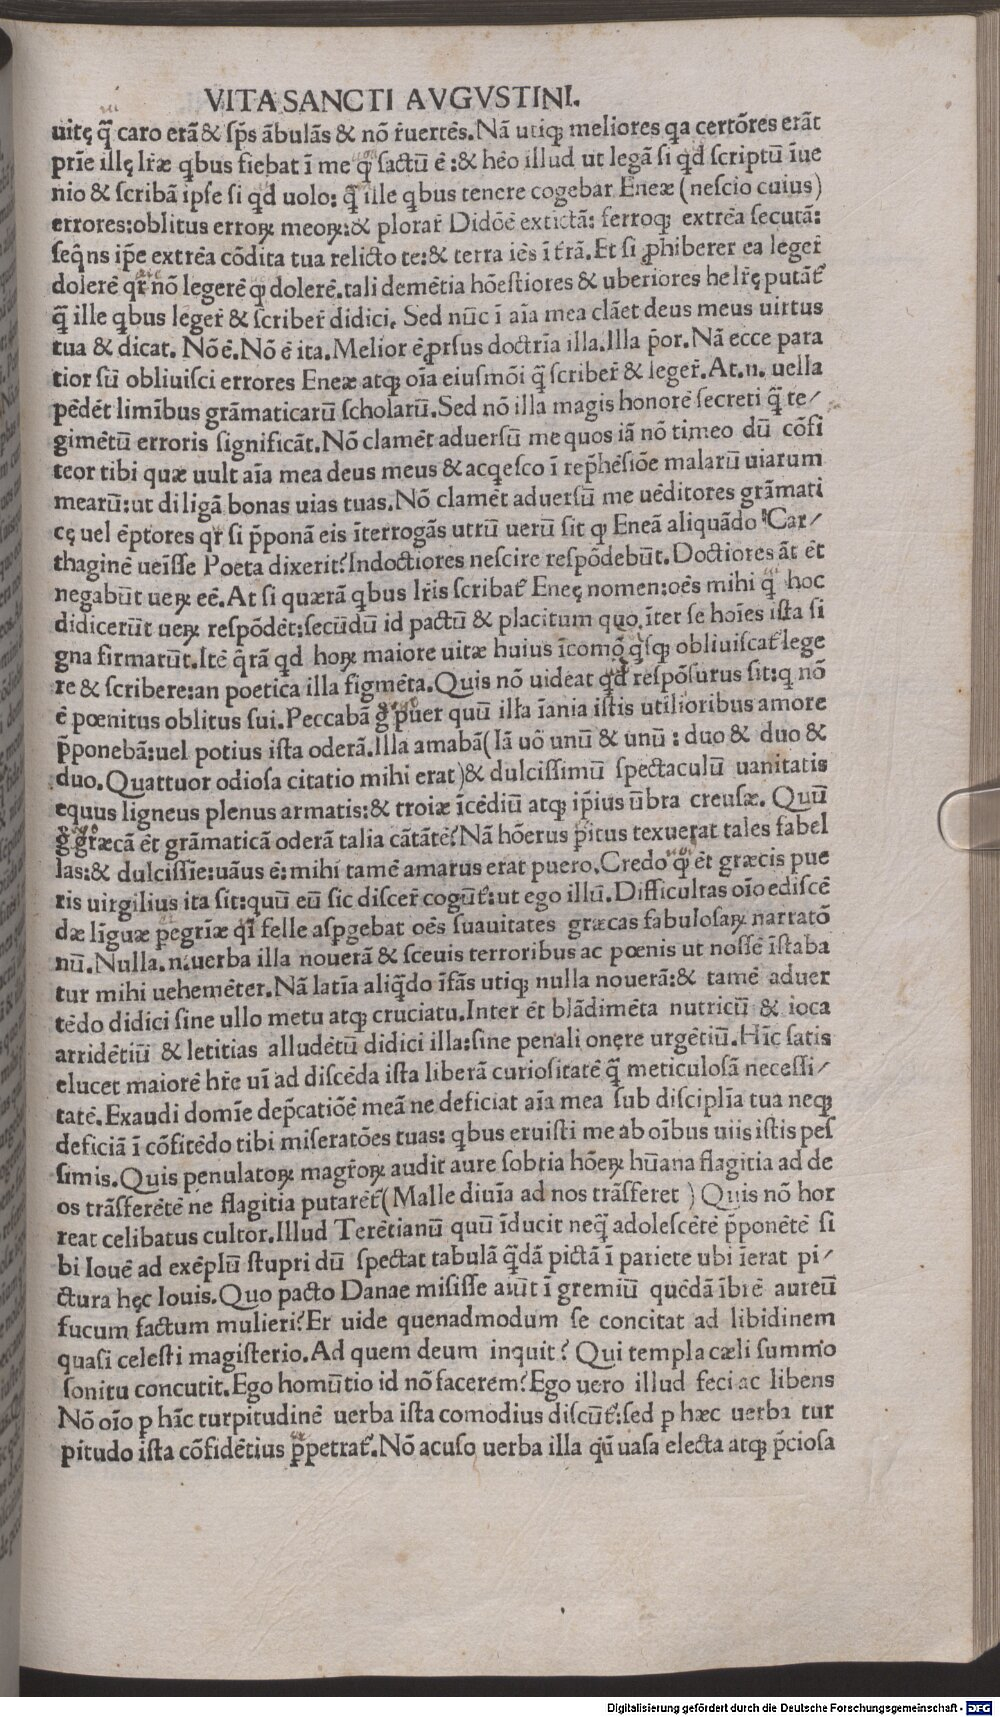 VITA SANCTI AVGVSTINI.
uitę q̃ caro erã & sp̃s ãbulãs & nõ r̃uertẽs. Nã utiqꝫ meliores qa certõres erãt
prĩe illę lr̃æ qbus fiebat ĩ me qđ factũ ẽ: & hẽo illud ut legã si qd scriptũ ĩue
nio & scribã ipse si qd uolo: q̃ ille qbus tenere cogebar Eneæ (nescio cuius)
errores: oblitus erroꝝ meoꝝ: & plorar̃ Didõẽ extictã: ferroqꝫ extrẽa secutã:
seq̃ns ip̃e extrẽa cõdita tua relicto te: & terra iẽs ĩ t̃rã. Et si ꝓhiberer ea leger̃
dolerẽ qr̃ nõ legerẽ qđ dolerẽ. tali demẽtia hõestiores & uberiores he lr̃ę putãt᷑
q̃ ille qbus leger̃ & scriber̃ didici. Sed nũc ĩ aĩa mea clãet deus meus uirtus
tua & dicat. Nõ ẽ. Nõ ẽ ita. Melior ẽ ꝓrsus doctrĩa illa. Illa p̃or. Nã ecce para
tior sũ obliuisci errores Eneæ atqꝫ oĩa eiusmõi q̃ scriber̃ & leger̃. At .n. uella
pẽdẽt limĩbus grãmaticarũ scholarũ. Sed nõ illa magis honorẽ secreti q̃ te/
gimẽtũ erroris significãt. Nõ clamẽt aduersũ me quos iã nõ timeo dũ cõfi
teor tibi quæ uult aĩa mea deus meus & acqesco ĩ rep̃hẽsiõe malarũ uiarum
mearũ: ut diligã bonas uias tuas. Nõ clamẽt aduersũ me uẽditores grãmati
cę uel ẽptores qr̃ si p̃ponã eis ĩterrogãs utrũ uerũ sit qđ Eneã aliquãdo Car/
thaginẽ ueĩsse Poeta dixerit? Indoctiores nescire respõdebũt. Doctiores ãt ẽt
negabũt ueꝝ eẽ. At si quærã qbus lr̃is scribat᷑ Eneę nomen: oẽs mihi q̃ hoc
didicerũt ueꝝ respõdẽt: secũdũ id pactũ & placitum quo ĩter se hoĩes ista si
gna firmarũt. Itẽ q̃rã qd hoꝝ maiore uitæ huius ĩcomõ qsqꝫ obliuiscat᷑ lege
re & scribere: an poetica illa figmẽta. Quis nõ uideat qđ respõsurus sit: q nõ
ẽ pœnitus oblitus sui. Peccabã g̃ puer quũ illa ĩania istis utilioribus amore
p̃ponebã: uel potius ista oderã. Illa amabã (Iã uõ unũ & unũ: duo & duo &
duo. Quattuor odiosa citatio mihi erat) & dulcissimũ spectaculũ uanitatis
equus ligneus plenus armatis: & troiæ ĩcẽdiũ atqꝫ ip̃ius ũbra creusæ. Quũ
g̃ græcã ẽt grãmaticã oderã talia cãtãtẽ? Nã hõerus p̃itus texuerat tales fabel
las: & dulcissĩe: uãus ẽ: mihi tamẽ amarus erat puero. Credo qđ ẽt græcis pue
ris uirgilius ita sit: quũ eũ sic discer̃ cogũt᷑: ut ego illũ. Difficultas oĩo ediscẽ
dæ lĩguæ ꝑegrĩæ qi felle aspgebat oẽs suauitates græcas fabulosaꝝ narratõ
nũ. Nulla .n. uerba illa nouerã & sceuis terroribus ac pœnis ut nossẽ ĩstaba
tur mihi uehemẽter. Nã latĩa aliq̃do ĩfãs utiqꝫ nulla nouerã: & tamẽ aduer
tẽdo didici sine ullo metu atqꝫ cruciatu. Inter ẽt blãdimẽta nutricũ & ioca
arridẽtiũ & letitias alludẽtũ didici illa: sine penali onęre urgẽtiũ. Hĩc satis
elucet maiorẽ hr̃e uĩ ad discẽda ista liberã curiositatẽ q̃ meticulosã necessi/
tatẽ. Exaudi domĩe dep̃catiõẽ meã ne deficiat aĩa mea sub disciplĩa tua neqꝫ
deficiã ĩ cõfitẽdo tibi miseratões tuas: qbus eruisti me ab oĩbus uiis istis pes
simis. Quis penulatoꝝ magr̃oꝝ audit aure sobria hõeꝝ hũana flagitia ad de
os trãsferẽtẽ ne flagitia putarẽt᷑ (Malle diuĩa ad nos trãsferet) Quis nõ hor
reat celibatus cultor. Illud Terẽtianũ quũ ĩducit neq̃ adolescẽtẽ p̃ponẽtẽ si
bi Iouẽ ad exẽplũ stupri dũ spectat tabulã q̃dã pictã ĩ pariete ubi ĩerat pi/
ctura hęc Iouis. Quo pacto Danae misisse aiũt ĩ gremiũ quẽdã ĩbrẽ aureũ
fucum factum mulieri? Er uide quenadmodum se concitat ad libidinem
quasi celesti magisterio. Ad quem deum inquit? Qui templa cæli summo
sonitu concutit. Ego homũtio id nõ facerem? Ego uero illud feci ac libens
Nõ oĩo p hãc turpitudinẽ uerba ista comodius discũt᷑: sed p hæc uerba tur
pitudo ista cõfidẽtius p̃petrat᷑. Nõ acuso uerba illa qũ uasa electa atqꝫ p̃ciosa
Digitalisierung gefördert durch die Deutsche Forschungsgemeinschaft - DFG